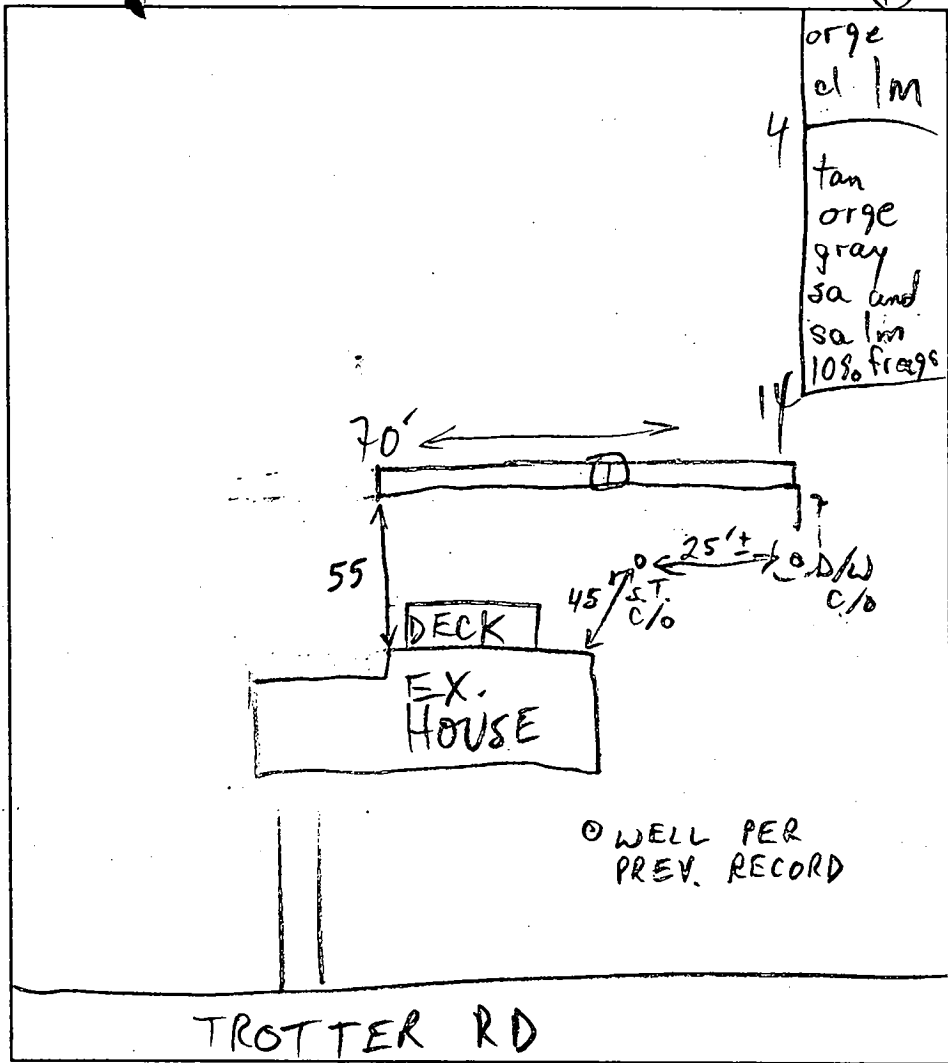 orge
cl lm
4
tan
orge
gray
sa and
sa lm
10% frags
14
70'
1
55
45'
S.T.
C/O
25'±
D/W
C/O
DECK
EX.
HOUSE
WELL PER
PREV. RECORD
TROTTER RD